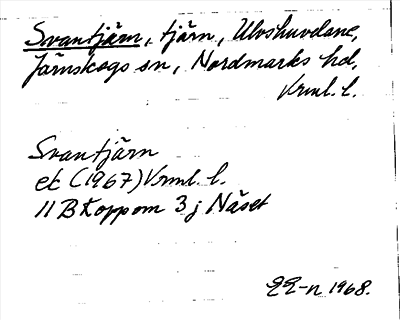 Svantjärn, tjärn, Ulvshuvdane,
Järnskogs sn, Nordmarks hd,
Vrml. l.
Svantjärn
ek (1967) Vrml. l.
11 B Koppom 3 j Näset
EE-n 1968.